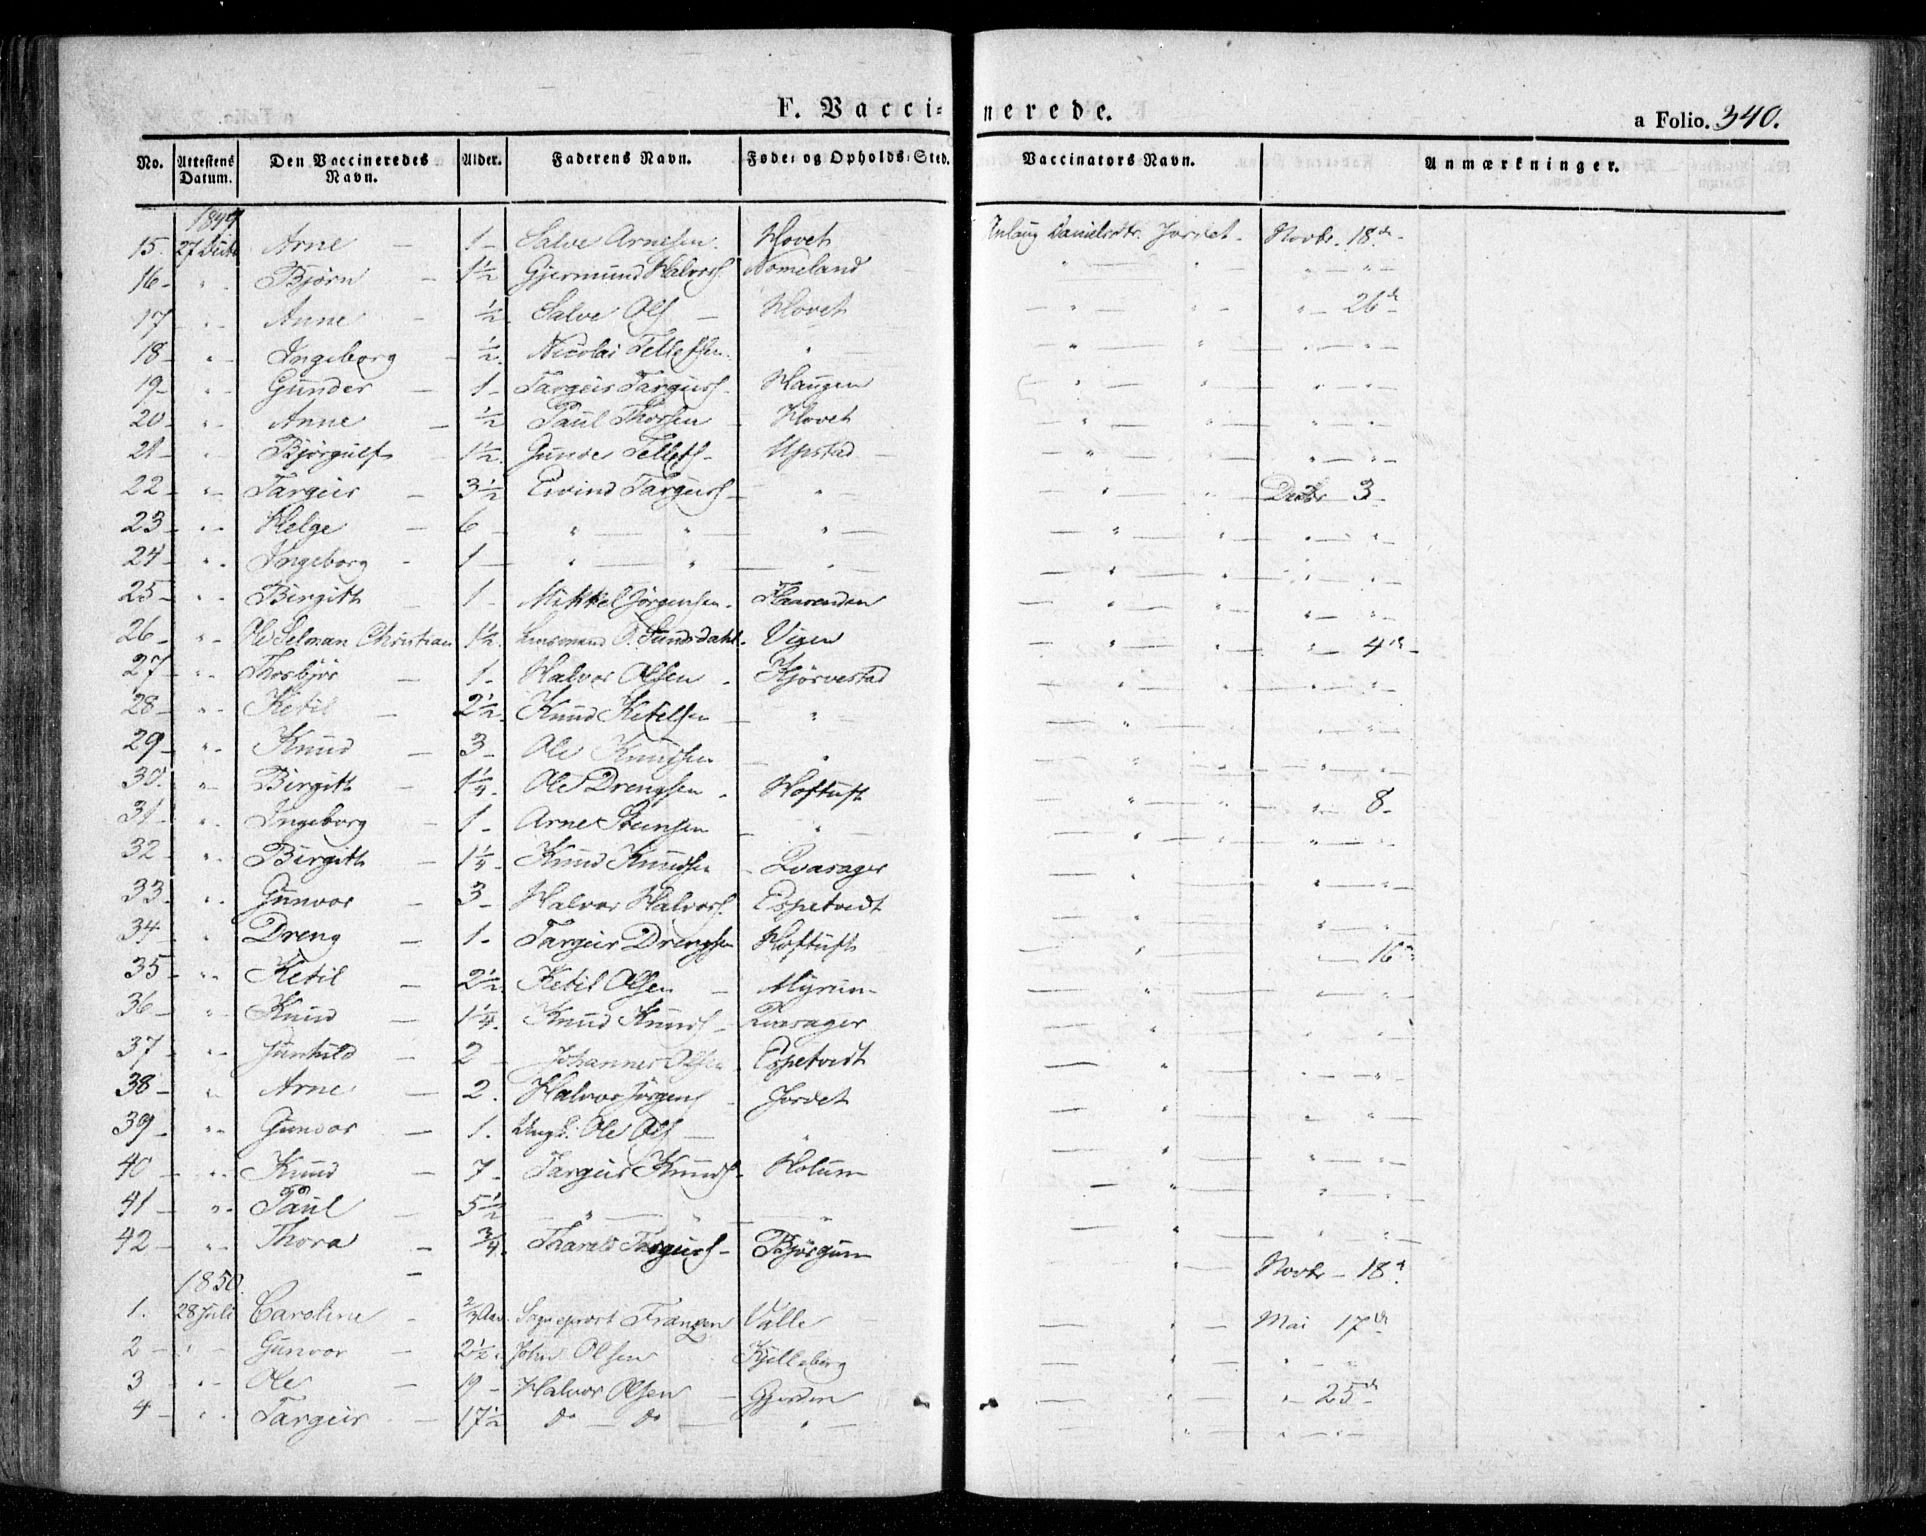 F. Vaccinerede.
a Folio. 340.
No. Attestens Datum. Den Vaccineredes Navn. Alder. Faderens Navn. Føde- og Opholds-Sted. Vaccinators Navn. Anmærkninger.
1849
15. 27 Decbr Arne — 1 - Salve Arnesen. Hovet Anlaug Danielsdtr. Jordet. Novbr. 18de -
16 - " - Bjørn — 1½ Gjermund Halvors. Nomeland " " " "
17 - " - Anne — ½. Salve Ols. — Hovet " " " 26de
18 - " - Ingeborg ½. Nicolai Tellefsen. " " " " "
19 - " - Gunder — 1 - Targeir Targeirs. Haugen " " " "
20 - " - Anne — ½ Paul Thorsen Hovet " " " "
21 - " - Bjørgulf 1½. Gunde Tellefs. - Upstad " " " "
22 - " - Targeir — 3½ Eivind Targeirs. " " " Decbr 3 -
23 - " - Helge — 6 - " " " " " " "
24 - " - Ingeborg - 1 " " " " " " "
25 - " - Birgith 1 - Mikkel Jørgensen. " " " "
26 - " - Ole Selman Christian 1½. Sundsdahl. Vigen " " " 4de -
27 - " - Thorbjør — 1 - Halvor Olsen - Kjørvestad " " " "
28 - " - Ketil — 2½. Knud Ketelsen " " " "
29 - " - Knud — 3 - Ole Knudsen " " " "
30. " - Birgith — 1¼. Ole Drengsen . Hoftuft " " " 8 -
31 - " - Ingeborg — 1 - Arne Steensen " " " "
32 - " - Birgith — 1¼ Knud Knudsen Qvasager " " "
33 - " - Gunvor — 3 - Halvor Halvors. Espetvedt " " "
34 - " Dreng — 1 - Targeir Drengsen Hoftuft " " 16de
35 - " - Ketil — 2½. Ketil Olsen — Myrum - " " "
36 - " - Knud — 1¼. Knud Knuds. Qvasager " " "
37 - " - Gunhild — 2 - Johannes Olsen Espetvedt " " "
38 - " - Arne — 2. Halvor Jørgens. Jordet " " "
39 - " - Gunvor — 1. Ungk. Ole Ols. " " " "
40 - " - Knud — 7 - Targeir Knuds. Holum " " "
41 - " - Paul — 5½ " " " " " "
42 - " - Thora — ¾. Tharald Targeirs. - Bjørgum " Novbr - 18de
1850.
1. 28 Juli Caroline - ⅔ Aar. Sogneprest Frantzen Valle " " Mai 17de
2 - " - Gunvor — 2½. John Olsen Kjelleberg " " " "
3 " - Ole — 19 - Halvor Olsen Gjerden " " " 25de
4 - " - Targeir — 17½ do — do " " " " "